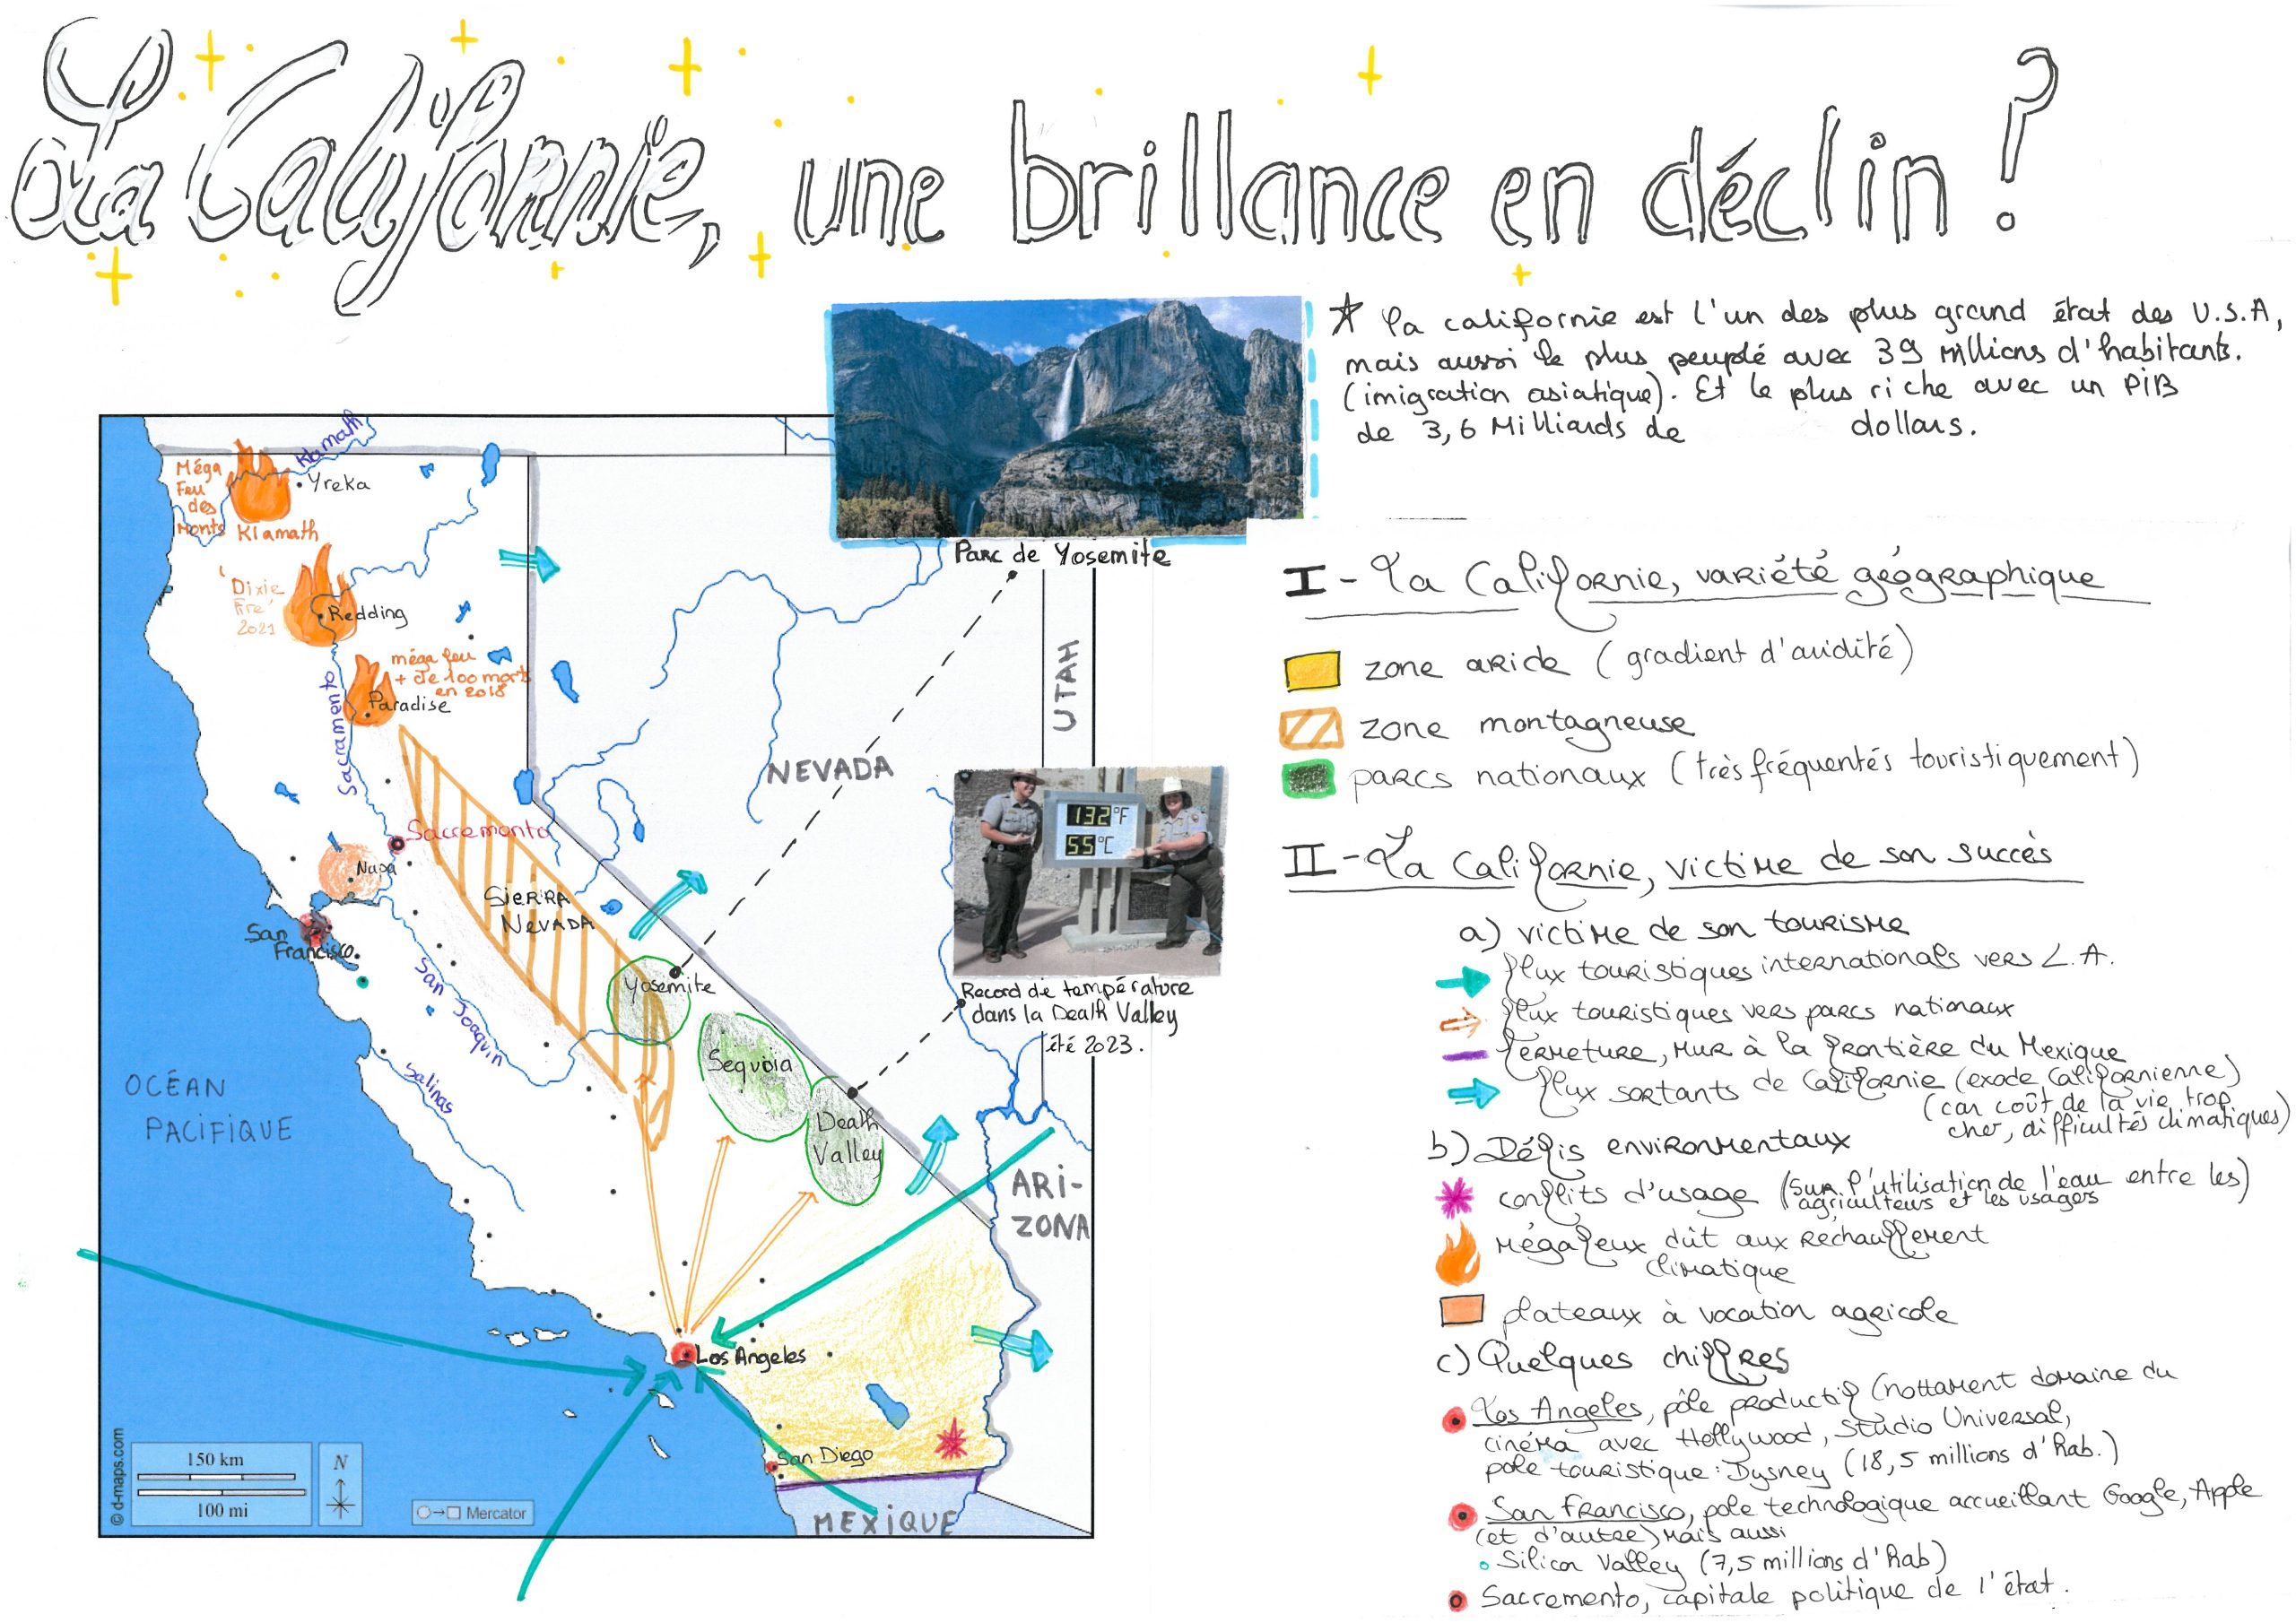 La Californie, une brillance en déclin ?
★ la californie est l'un des plus grand état des U.S.A,
mais aussi le plus peuplé avec 39 Millions d'habitants.
(imigration asiatique). Et le plus riche avec un PIB
de 3,6 Milliards de dollars.
Parc de Yosemite
Klamath
Méga
Feu
des
Monts Klamath
Yreka
'Dixie
Fire'
2021
Redding
méga feu
+ de 100 morts
en 2018
Paradise
Sacramento
Sacremento
Napa
San
Francisco
SIERRA
NEVADA
San Joaquin
Salinas
Yosemite
Sequoia
Death
Valley
NEVADA
UTAH
132°F
55°C
Record de température
dans la Death Valley
été 2023.
ARI-
ZONA
OCÉAN
PACIFIQUE
Los Angeles
San Diego
MEXIQUE
© d-maps.com
150 km
100 mi
N
Mercator
I - La Californie, variété géographique
zone aride (gradient d'aridité)
zone montagneuse
parcs nationaux (très fréquentés touristiquement)
II - La Californie, victime de son succès
a) victime de son tourisme
flux touristiques internationals vers L.A.
flux touristiques vers parcs nationaux
fermeture, mur à la frontière du Mexique
flux sortants de Californie (exode Californienne)
(car coût de la vie trop
cher, difficultés climatiques)
b) Défis environmentaux
conflits d'usage (sur l'utilisation de l'eau entre les)
agriculteurs et les usagers
Mégafeux dût aux réchauffement
climatique
plateaux à vocation agricole
c) Quelques chiffres
Los Angeles, pôle productif (nottament domaine du
cinéma avec Hollywood, Studio Universal,
pole touristique : Dysney (18,5 millions d'hab.)
San Francisco, pole technologique accueillant Google, Apple
(et d'autre) mais aussi
Silicon Valley (7,5 millions d'hab)
Sacremento, capitale politique de l'état.